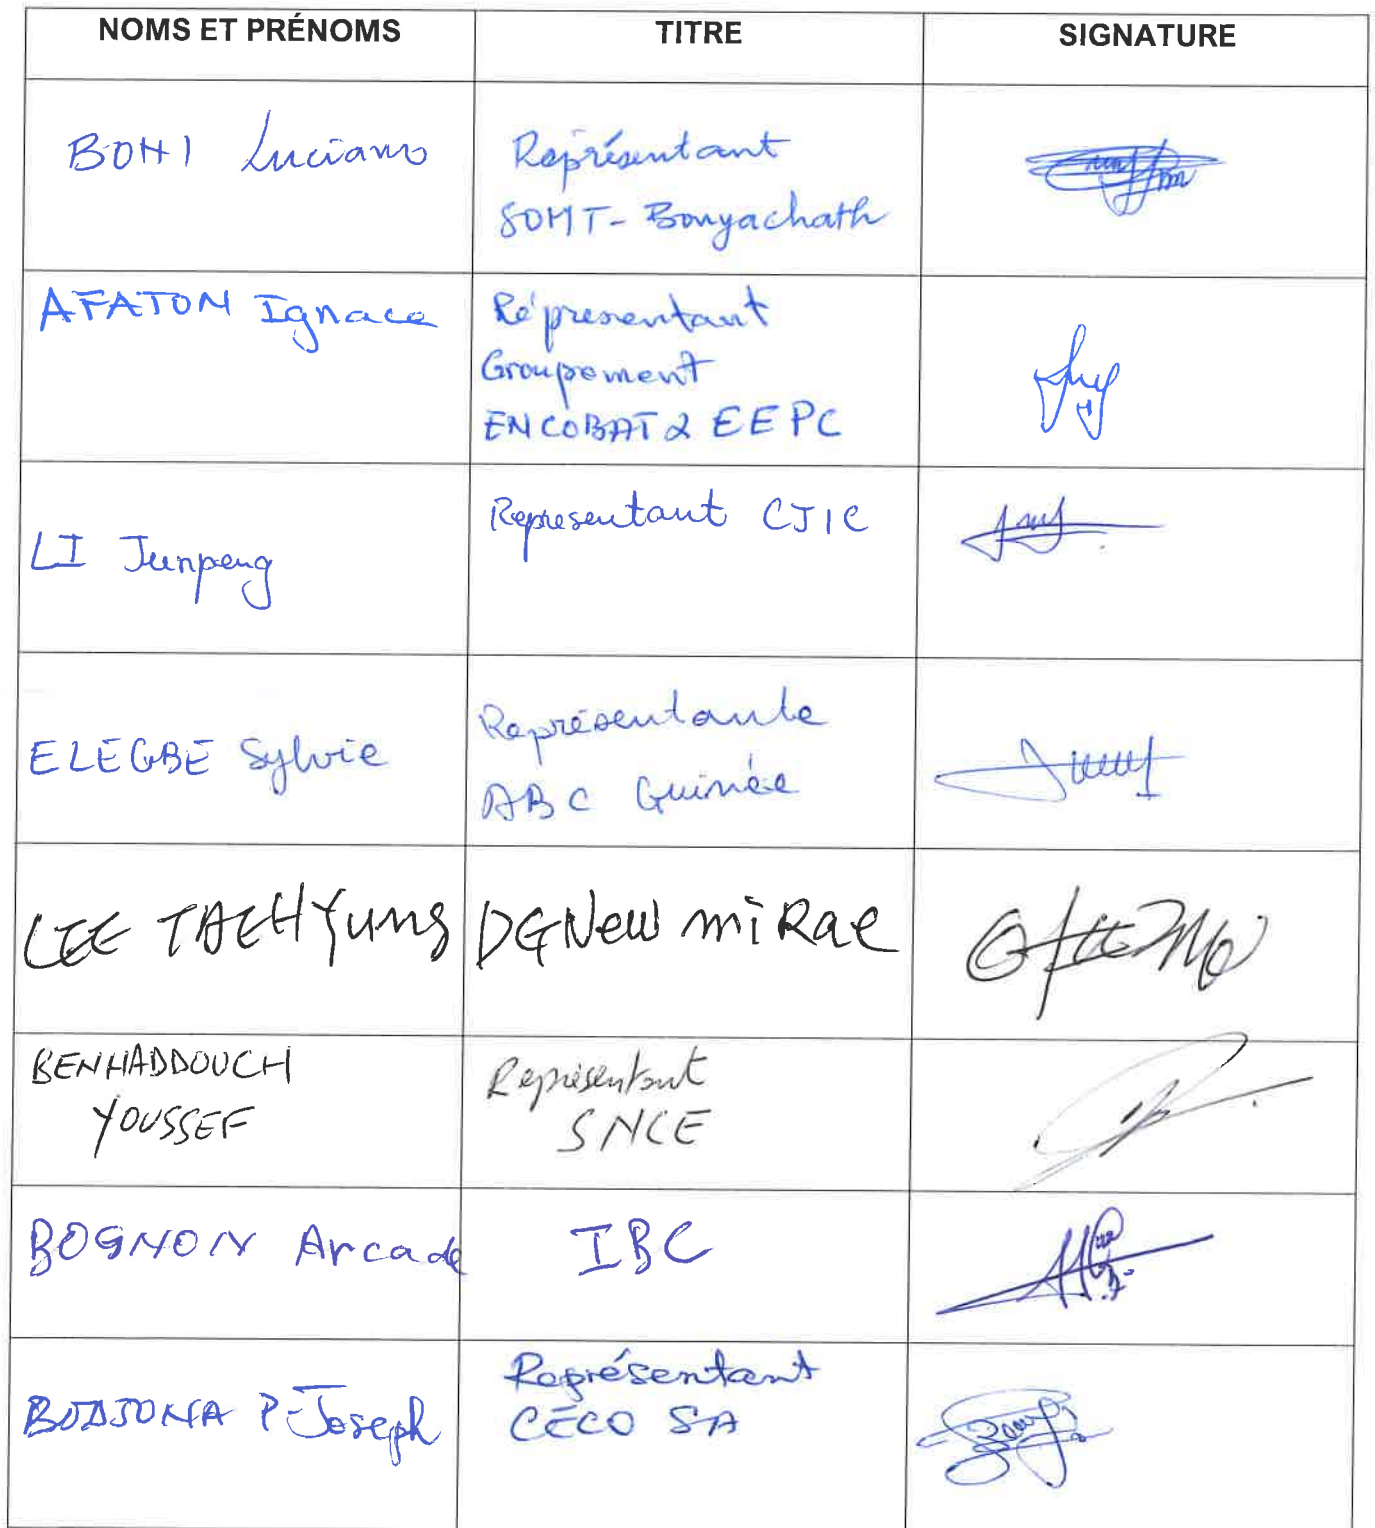 NOMS ET PRÉNOMS TITRE SIGNATURE
BOHI Luciano Représentant
SOMT- Bonyachath
AFATON Ignace Répresentant
Groupement
ENCOBAT & EEPC
LI Junpeng Representant CJIC
ELEGBE Sylvie Représentante
ABC Guinée
LEE TAEHYUNG DG New miRae
BENHADDOUCH
YOUSSEF
Représentant
SNCE
BOGNON Arcade IBC
BODJONA P. Joseph Représentant
CECO SA